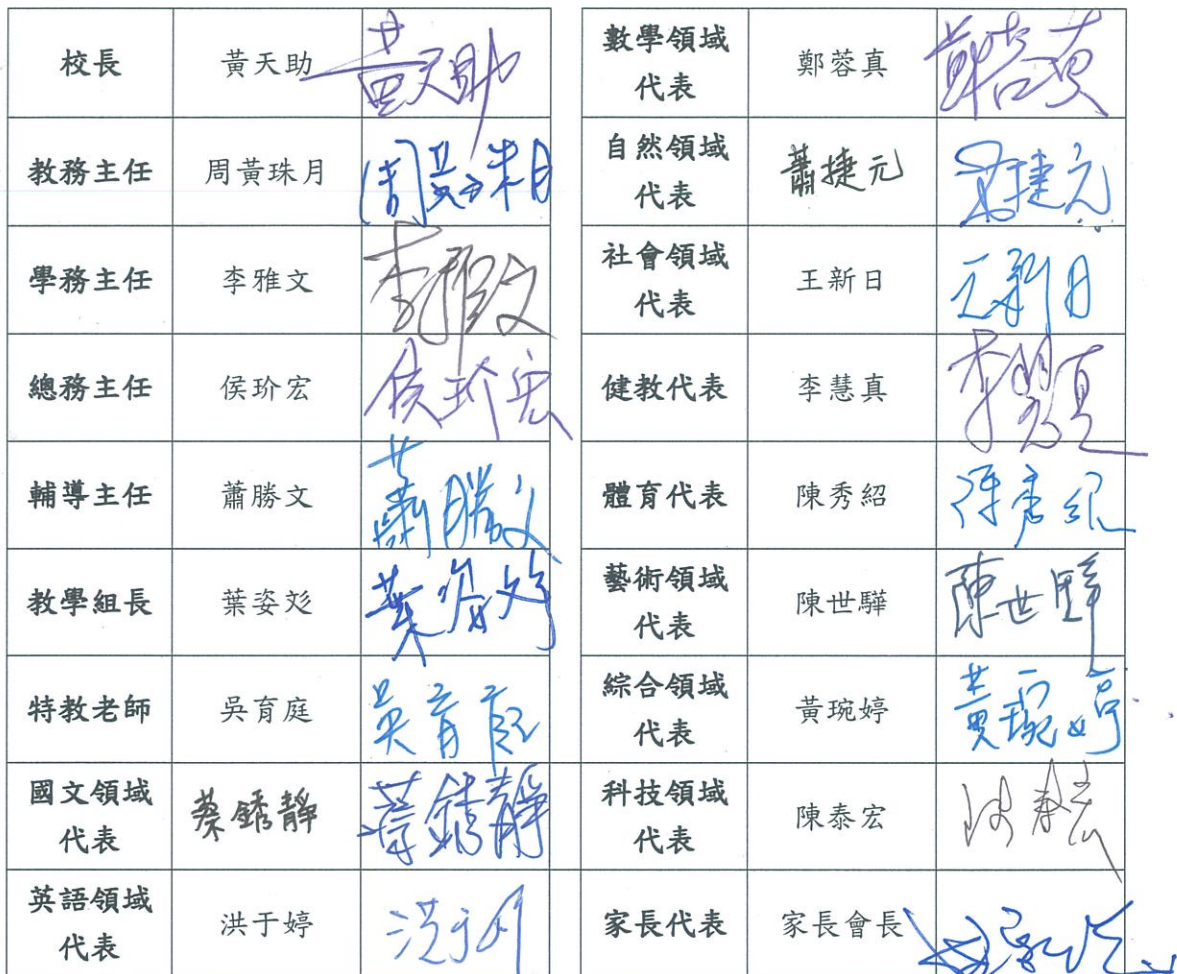 校長 黃天助 黃天助
教務主任 周黃珠月 周黃珠月
學務主任 李雅文 李雅文
總務主任 侯玠宏 侯玠宏
輔導主任 蕭勝文 蕭勝文
教學組長 葉姿彣 葉姿彣
特教老師 吳育庭 吳育庭
國文領域
代表 蔡銹靜 蔡銹靜
英語領域
代表 洪于婷 洪于婷
數學領域
代表 鄭蓉真 鄭蓉真
自然領域
代表 蕭捷元 蕭捷元
社會領域
代表 王新日 王新日
健教代表 李慧真 李慧真
體育代表 陳秀紹 陳秀紹
藝術領域
代表 陳世驊 陳世驊
綜合領域
代表 黃琬婷 黃琬婷
科技領域
代表 陳泰宏 陳泰宏
家長代表 家長會長